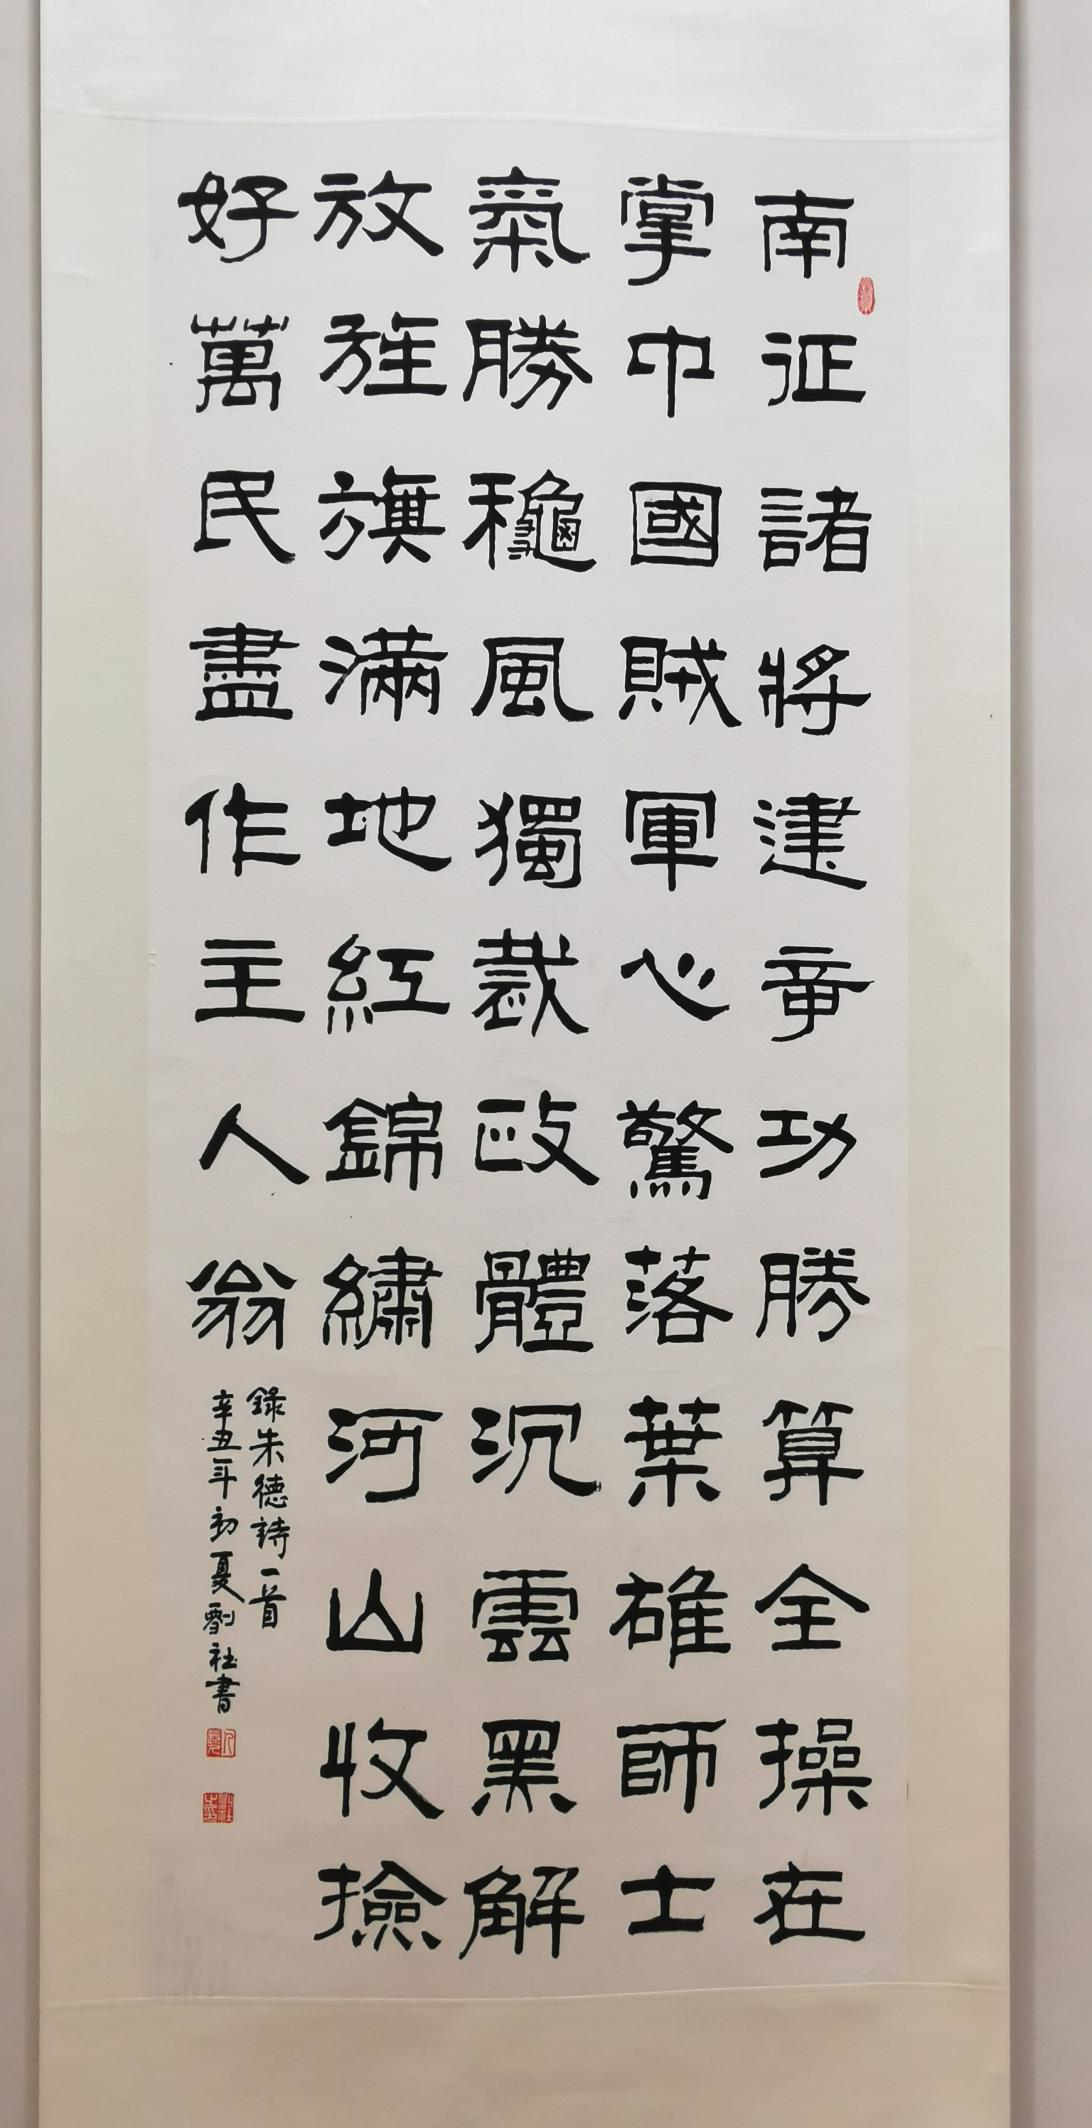 南征諸將建奇功勝算全操在
掌中國賊軍心驚落葉雄師士
氣勝穐風獨裁政體沉雲黑解
放旌旗滿地紅錦繡河山收撿
好萬民盡作主人翁
錄朱德詩一首
辛丑年初夏劉社書